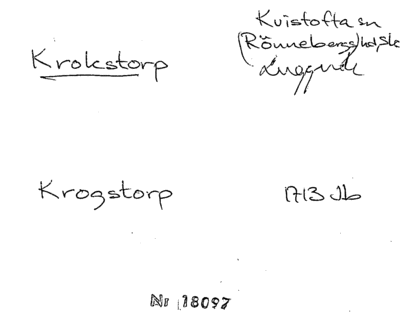 Kvistofta sn
(Rönnebergs) hd Sk
Krokstorp
Luggude
Krogstorp
1713 Jb
Nr 18097